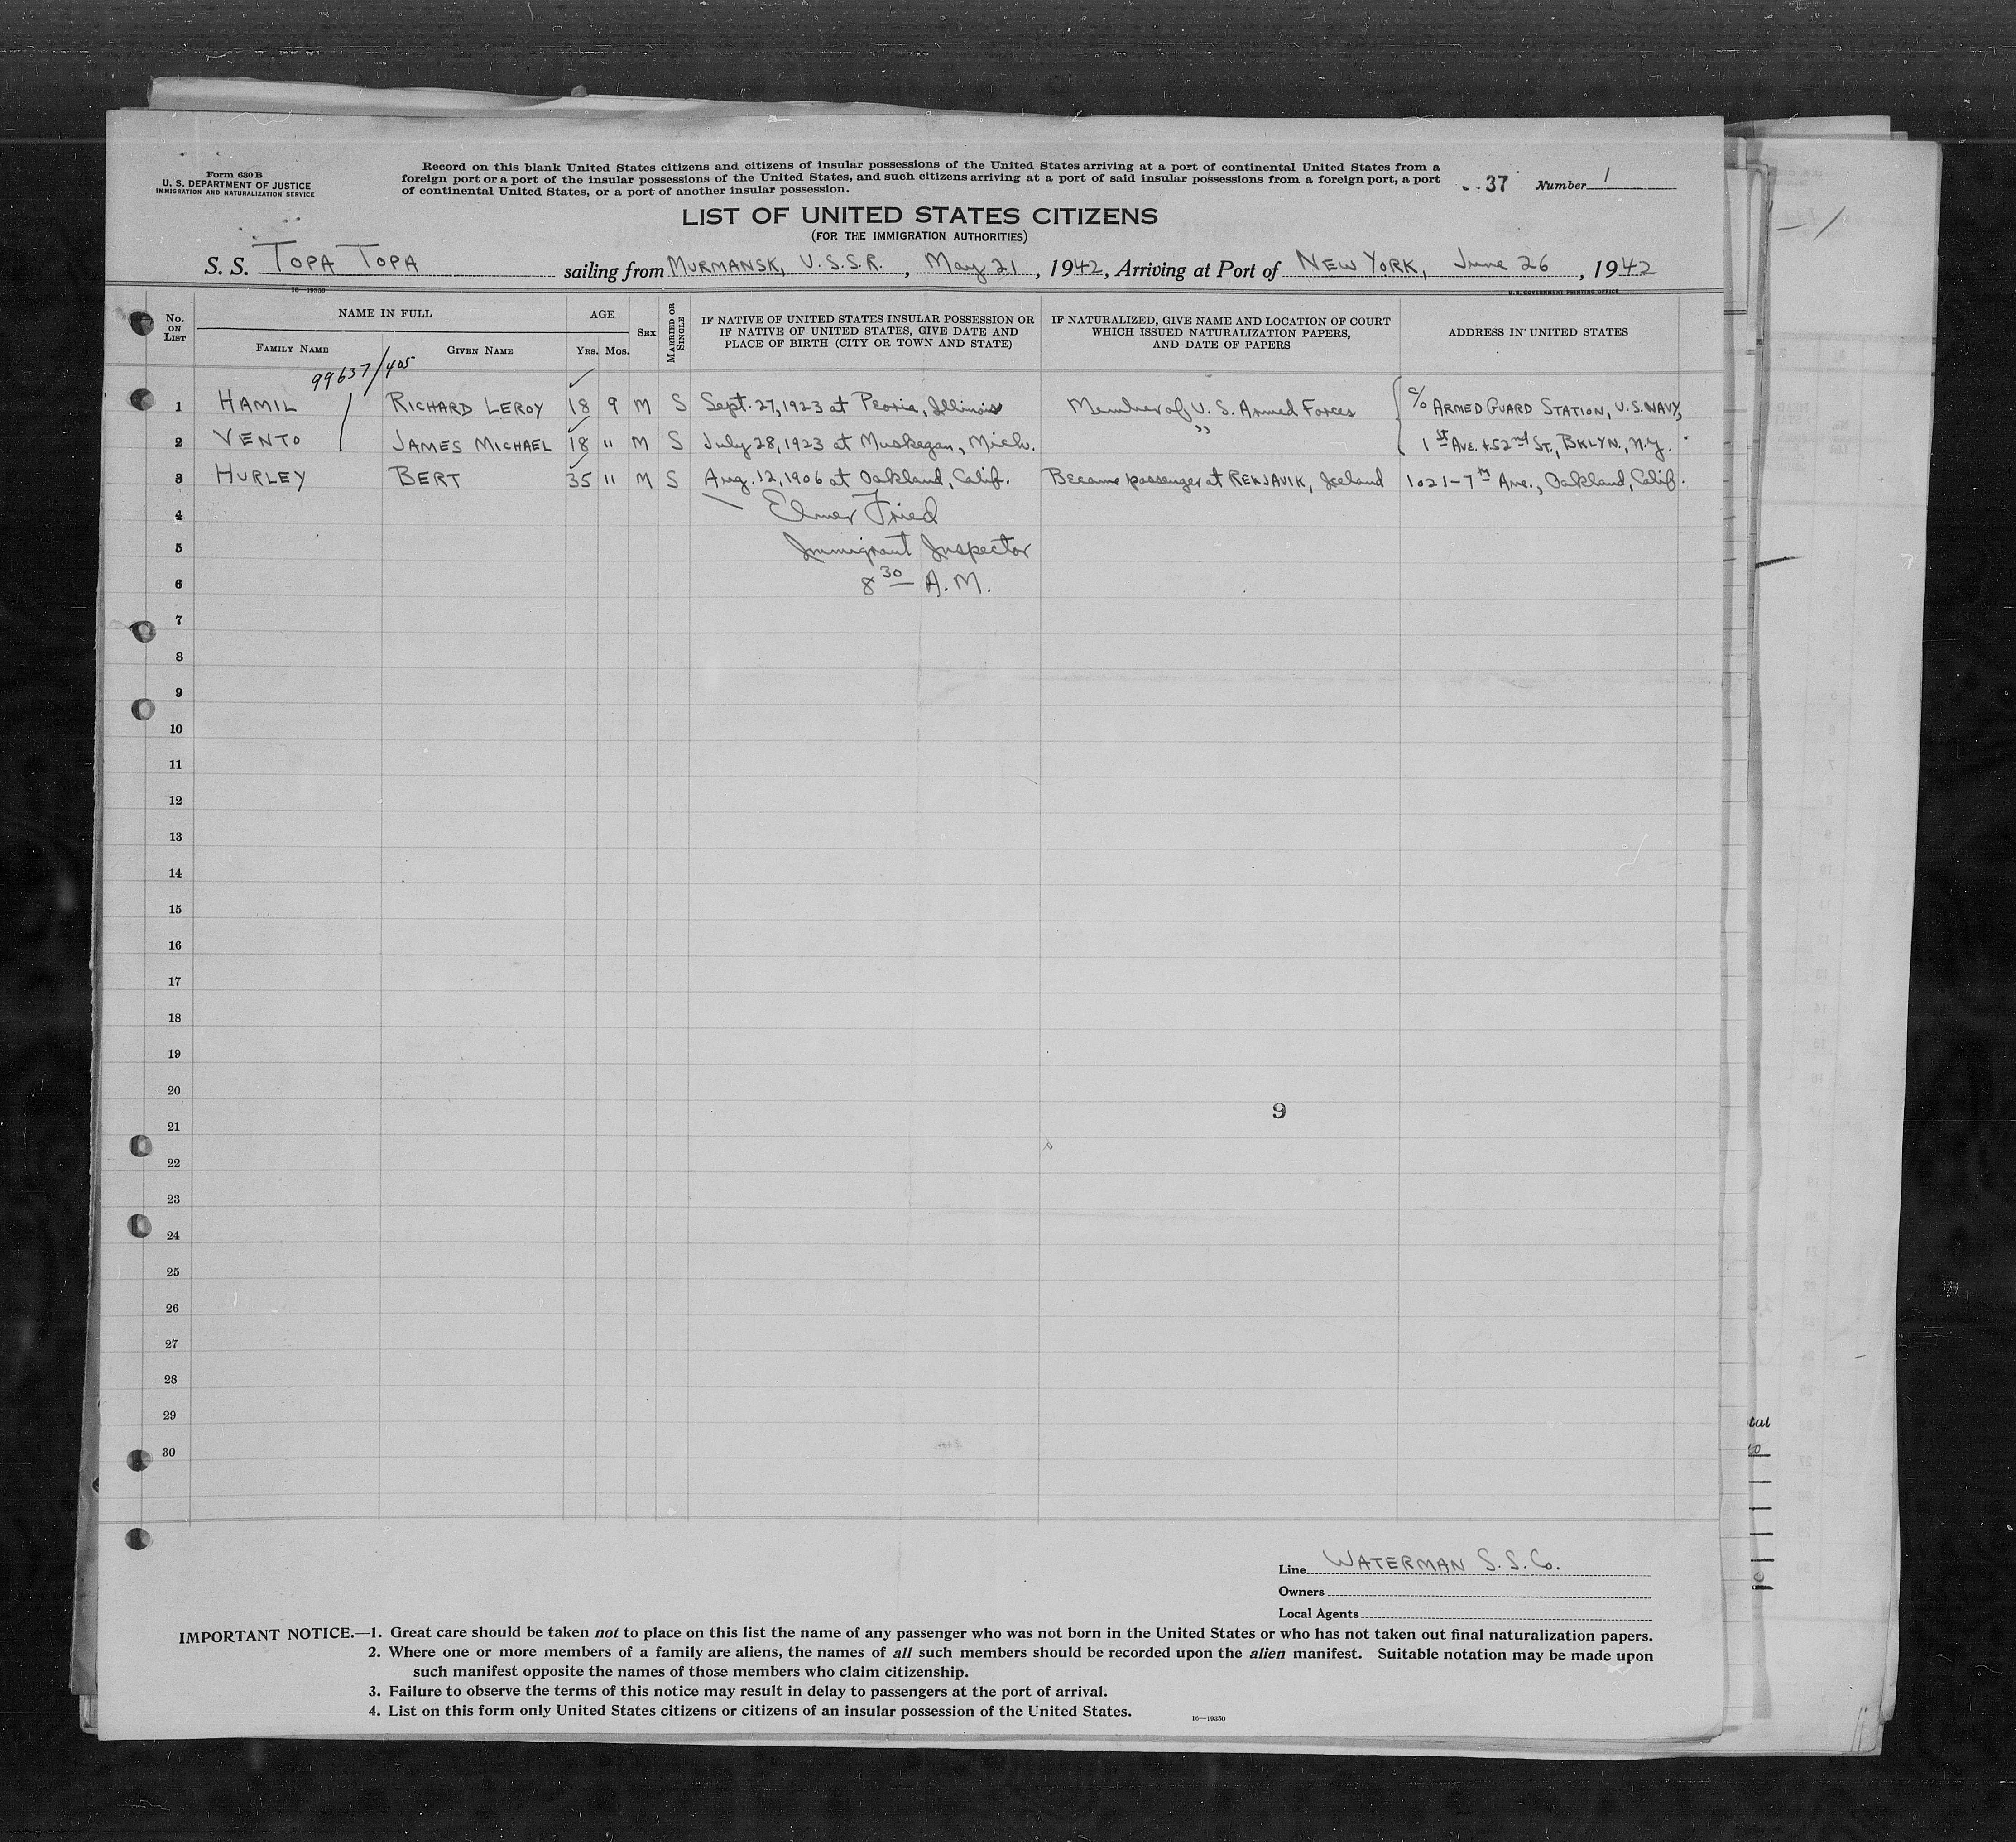 Form 630 B
U. S. DEPARTMENT OF JUSTICE
IMMIGRATION AND NATURALIZATION SERVICE
Record on this blank United States citizens and citizens of insular possessions of the United States arriving at a port of continental United States from a
foreign port or a port of the insular possessions of the United States, and such citizens arriving at a port of said insular possessions from a foreign port, a port
of continental United States, or a port of another insular possession.
37 Number 1
LIST OF UNITED STATES CITIZENS
(FOR THE IMMIGRATION AUTHORITIES)
S. S. TOPA TOPA sailing from MURMANSK, U.S.S.R., May 21, 1942, Arriving at Port of NEW YORK, June 26, 1942
16—19350
U. S. GOVERNMENT PRINTING OFFICE
No. ON LIST
NAME IN FULL
FAMILY NAME
GIVEN NAME
AGE
YRS. MOS.
SEX
MARRIED OR SINGLE
IF NATIVE OF UNITED STATES INSULAR POSSESSION OR
IF NATIVE OF UNITED STATES, GIVE DATE AND
PLACE OF BIRTH (CITY OR TOWN AND STATE)
IF NATURALIZED, GIVE NAME AND LOCATION OF COURT
WHICH ISSUED NATURALIZATION PAPERS,
AND DATE OF PAPERS
ADDRESS IN UNITED STATES
99637/405
1 HAMIL RICHARD LEROY 18 9 M S Sept. 27, 1923 at Peoria, Illinois Member of U. S. Armed Forces c/o ARMED GUARD STATION, U.S. NAVY,
2 VENTO JAMES MICHAEL 18 " M S July 28, 1923 at Muskegan, Mich. " 1st Ave. & 52nd St., BKLYN., N.Y.
3 HURLEY BERT 35 " M S Aug. 12, 1906 at Oakland, Calif. Became passenger at REKJAVIK, Iceland 1021-7th Ave., Oakland, Calif.
4 Elmer Fried
5 Immigrant Inspector
6 8 30 A.M.
7
8
9
10
11
12
13
14
15
16
17
18
19
20
9
21
22
23
24
25
26
27
28
29
30
Line WATERMAN S.S. Co.
Owners
Local Agents
IMPORTANT NOTICE.—1. Great care should be taken not to place on this list the name of any passenger who was not born in the United States or who has not taken out final naturalization papers.
2. Where one or more members of a family are aliens, the names of all such members should be recorded upon the alien manifest. Suitable notation may be made upon
such manifest opposite the names of those members who claim citizenship.
3. Failure to observe the terms of this notice may result in delay to passengers at the port of arrival.
4. List on this form only United States citizens or citizens of an insular possession of the United States.
16—19350